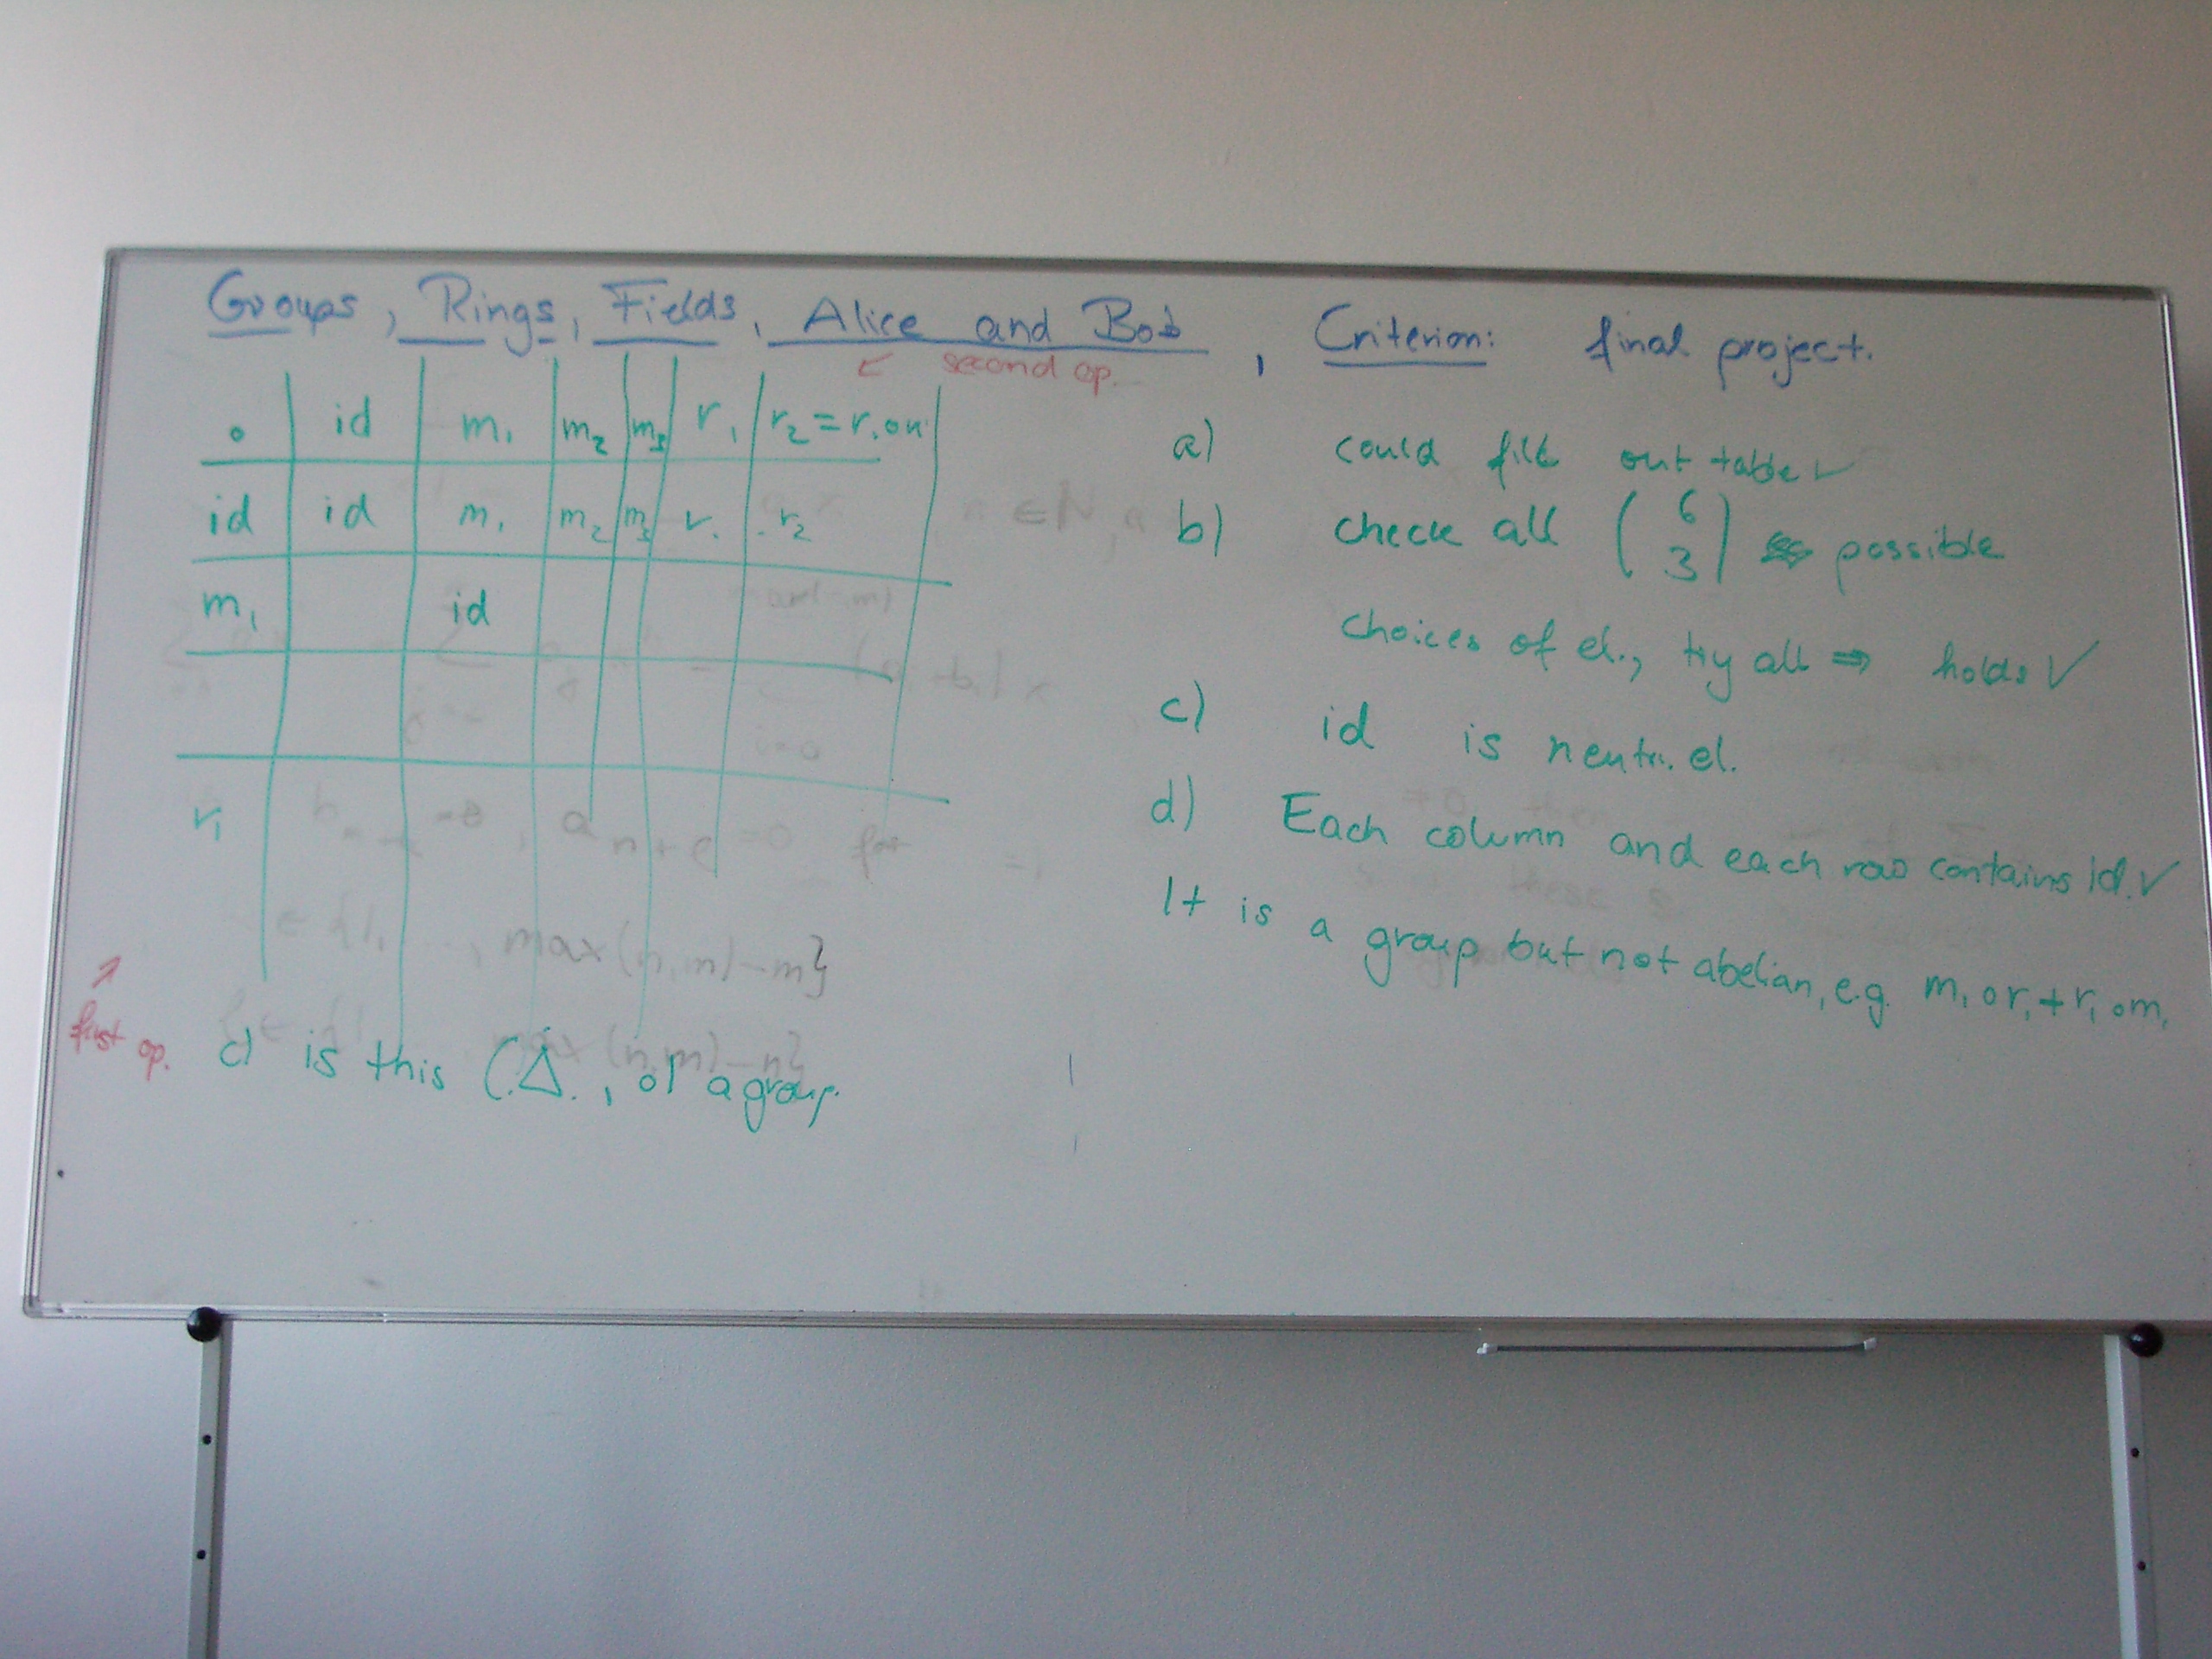 Groups, Rings, Fields, Alice and Bob, Criterion: final project.
second op.
∘ id m₁ m₂ m₃ r₁ r₂ = r₁∘r₁
id id m₁ m₂ m₃ r₁ r₂
m₁ id
r₁
first op.
c) is this (Δ, ∘) a group
a) could fill out table ✓
b) check all (6 3) possible
choices of el., try all ⇒ holds ✓
c) id is neutr. el.
d) Each column and each row contains id. ✓
It is a group but not abelian, e.g. m₁ ∘ r₁ ≠ r₁ ∘ m₁
max(n,m)-m}
max(n,m)-n}